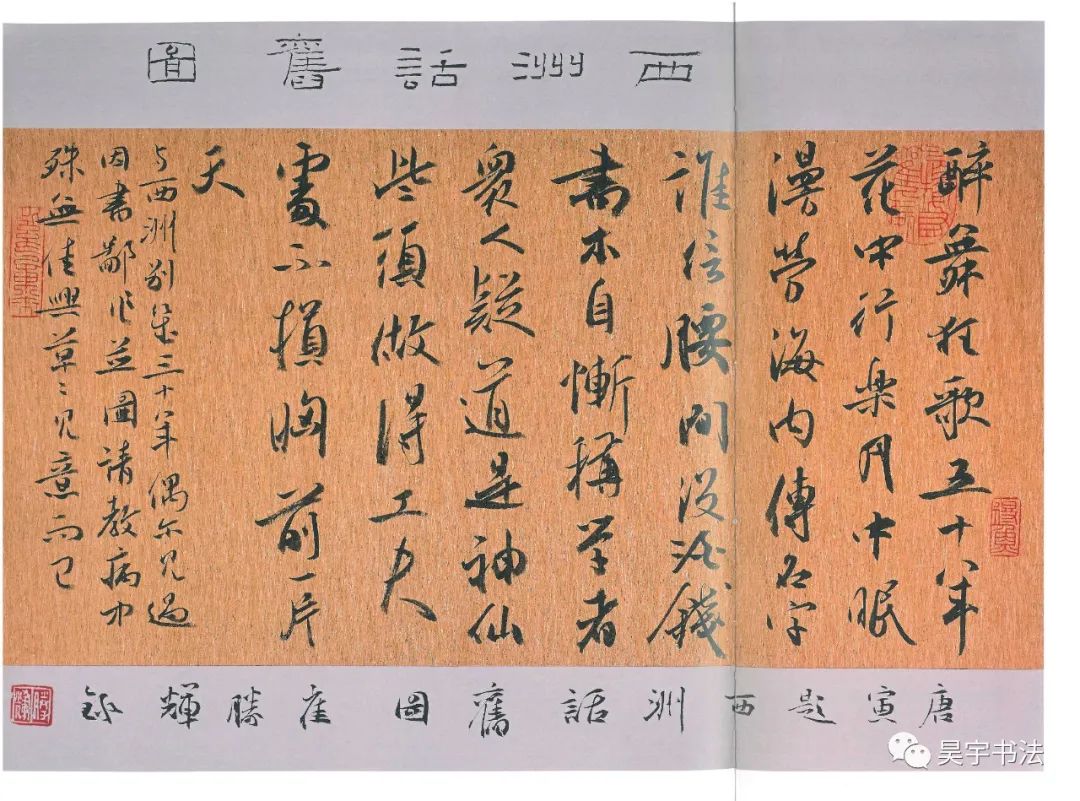 西洲話舊圖
醉舞狂歌五十年
花中行楽月中眠
漫勞海内傳名字
誰信腰間没酒錢
書本自慚稱学者
衆人疑道是神仙
些須做得工夫
處不損胸前一片
天
与西洲别幾三十年偶尔見過
因書鄙作並圖請教病中
殊無佳興草〻見意而已
唐寅題西洲話舊圖崔勝輝錄
昊宇书法